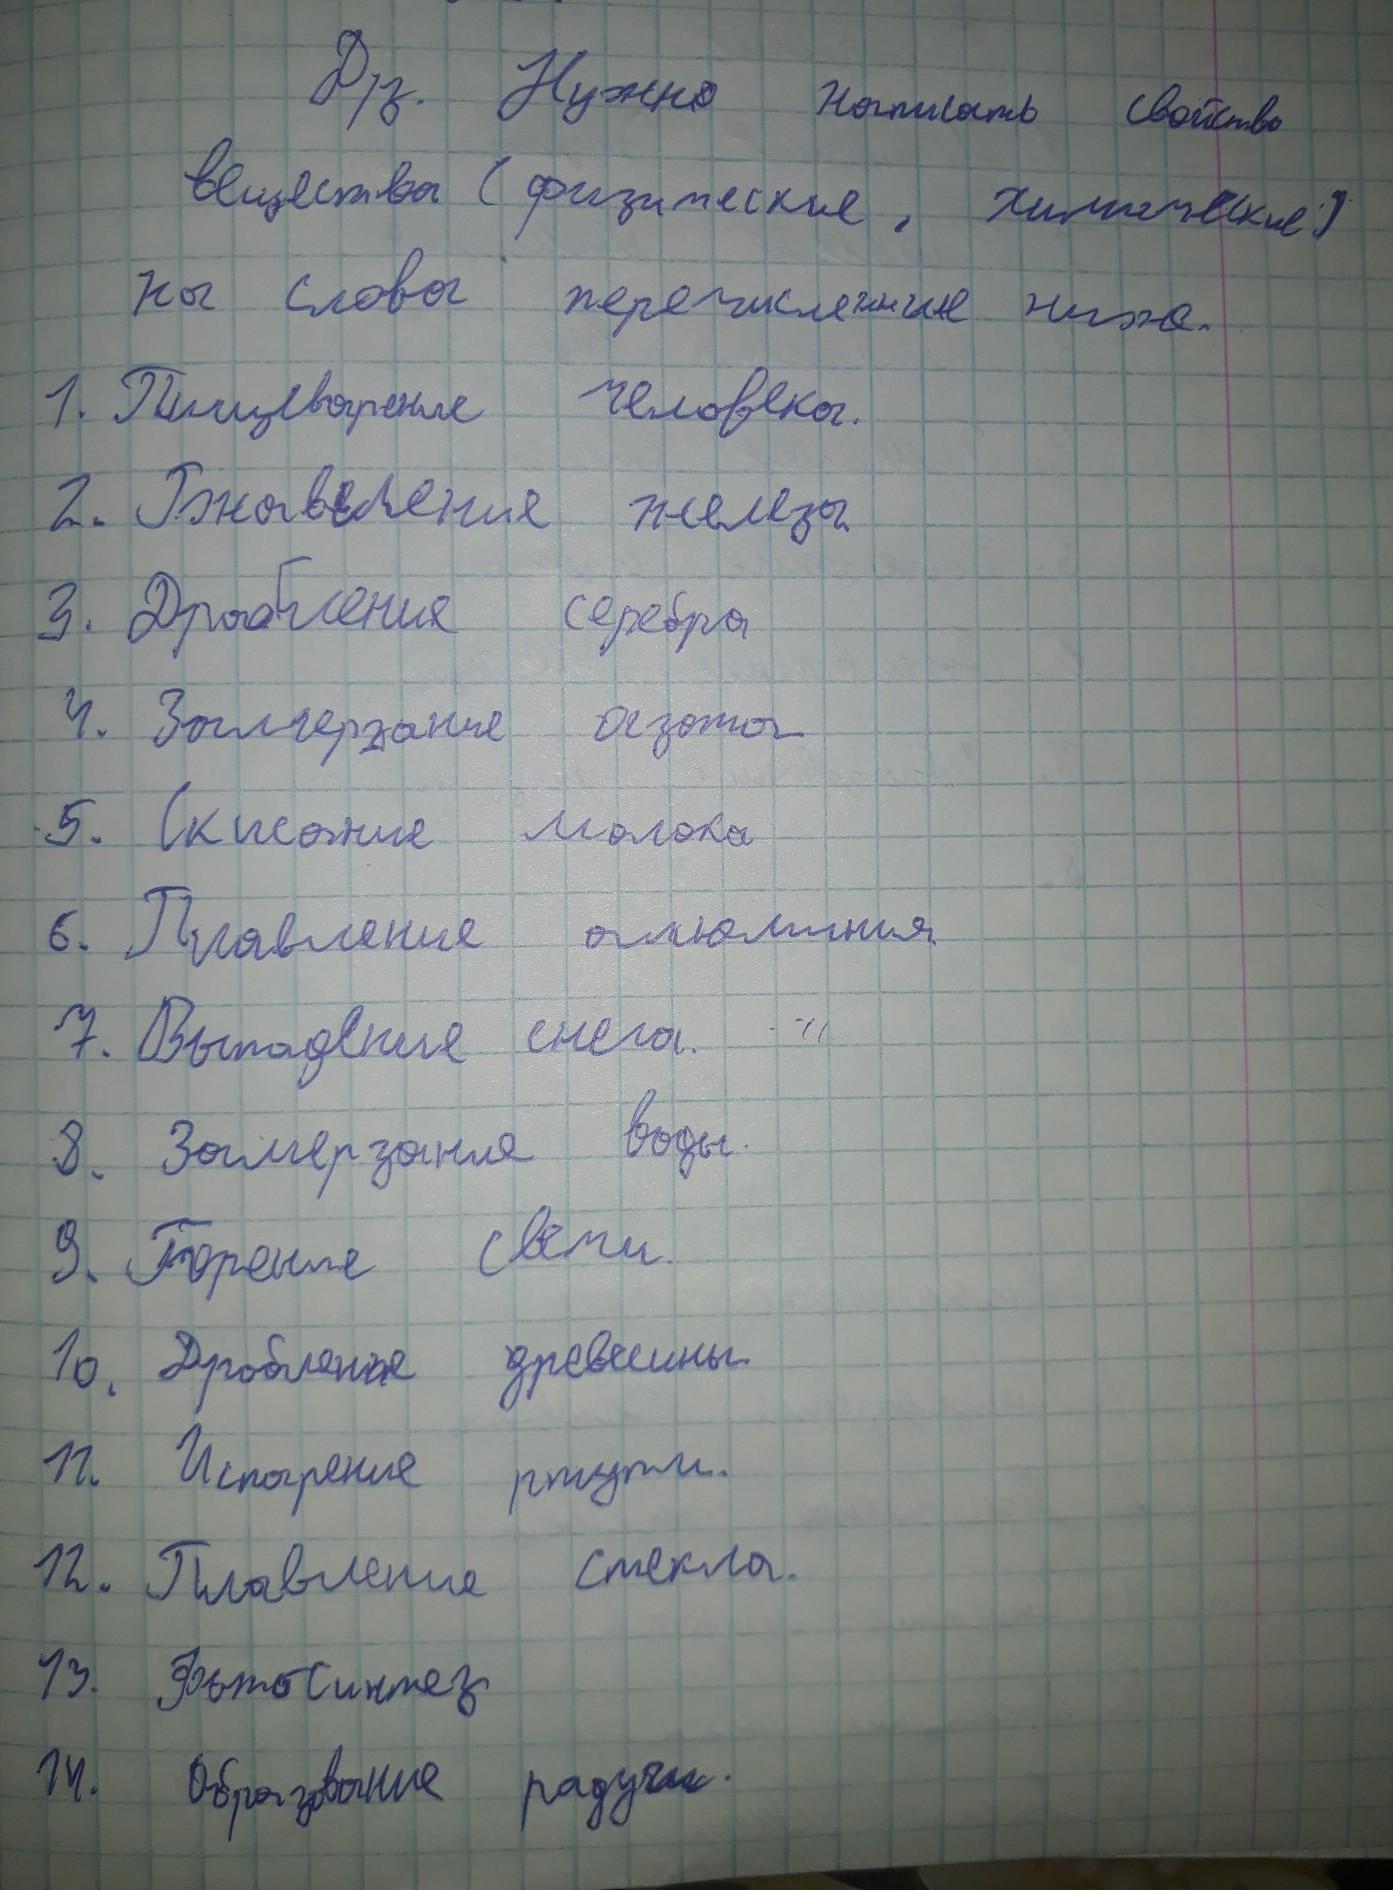 Д/з. Нужно написать свойство
вещества (физические, химические)
на слова перечисленние ниже.
1. Пищеварение человека.
2. Ржавеления железа
3. Дробления серебра
4. Замерзание азота
5. Скисание молока
6. Плавление алюминия
7. Выпадение снега.
8. Замерзания воды.
9. Горение свечи.
10. Дробление древесины.
11. Испарение ртути.
12. Плавление стекла.
13. Фотосинтез
14. Образование радуги.